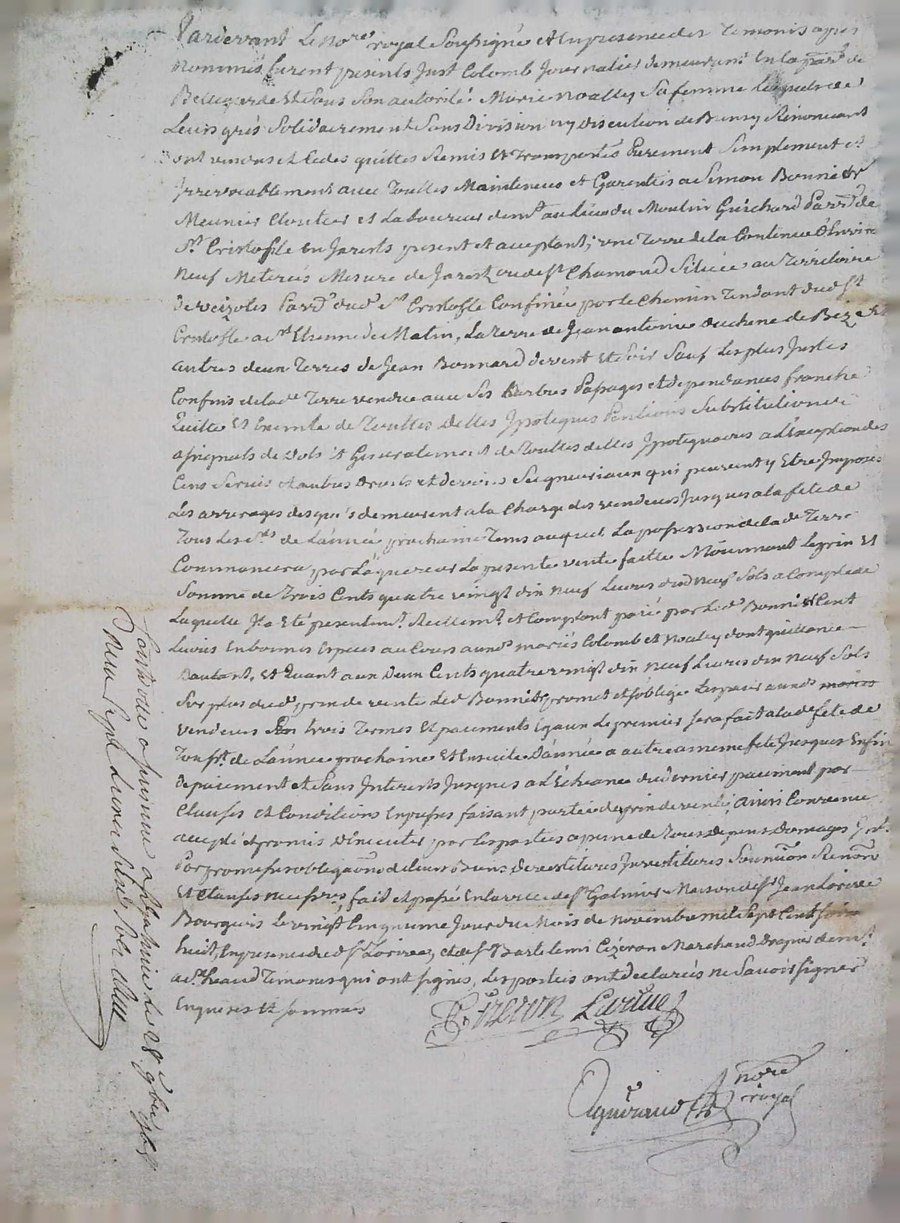 Pardevant Le Nore royal Soussigné et En presence des Temoins apres
Nommés, furent presents Just Colomb Journalier demeurant En la parse de
Bellegarde Et Sous Son autorité Marie Noally Sa femme Lesquels de
Leurs grés Solidairement Sans Division ny Discution de Biens y Renonceant
ont vendus et Cedes quittes Remis Et Transportés Purement Simplement et
Irrevocablement avec Touttes Maintenues et Garenties a Simon Bonnier
Meunier Cloutier et Laboureur demt au lieu du Moulin Guichard Parrse de
St Cristofle En Jarests present et acceptant; une Terre de la Contenue d'Environ
Neuf Meterés Mesure de Jarest ou de St Chamond Sitüée au Territoire
de Parrse dud St Cristofle Confinée par le Chemin Tendant dud St
Cristofle a St Etienne de Matin, La Terre de Jean antoine duchene de Bize Et
autres deux Terres de Jean Bonnard de vent Et Soir Sauf Les plus Justes
Confins de lade Terre vendue avec Ses Passages et dependances franche
Quitte Et Exempte de Touttes Dettes Ipoteques Pentions Substitutions
Generalement de Touttes dettes Ipotequaires a L'Exception des
Cens Servis et autres Droits et devoirs Seigneuriaux qui peuvent y Etre Imposés
Les arrerages desquels demeurent a la Charge des vendeurs Jusques a la fete de
Tous Les Sts de L'année prochaine Tems auquel La possession de lade Terre
Commancera par L'aquereur La presente vente faitte Moiennant Le prix Et
Somme de Trois Cents quatre vingt dix neuf Livres dix Neuf Sols a Compte de
Laquelle Il a Eté presentemt Reellemt et Comptant paié par Led Bonnier Cent
Livres En bonnes Especes au Cours aud mariés Colomb et Noaley dont quittance
Dautant, et Quant aux Deux Cents quatre vingt dix neuf Livres dix neuf Sols
Surplus dud prix de vente Led Bonnier promet et s'oblige Les paier auxd mariés
vendeurs En trois Termes Et paiements Egaux Le premier Sera fait a lade fete de
Toust de L'année prochaine Et Ensuite D'année a autre a meme fete Jusques Enfin
de paiement et Sans Interests Jusques a L'Echeance du dernier paiement par
Clauses et Conditions Expresses faisant partie de prix de vente; ainsi Convenu
accepté et promis D'executer par Les parties a peine de Tous depens Domages Ints
Par promesse obligaons de leurs Biens Devestitures Investitures Soumison Renons
Et Clauses necessres, fait et passé En la ville de St Galmier Maison de Sr Jean Loizee
Bourgeois Le vingt Cinquieme Jour du Mois de Novembre mil Sept Cent Soixte
huit, En presence dud Sr et de Sr Bartelemi Cizeron Marchand Drapier demt
aud St Temoins qui ont signés, Les parties ont declarées ne Savoir signer
Enquises Et Sommées
Cizeron
Nore
royal
Controllé a par nous Le 28 9bre 1768
Reçu Sept Livres